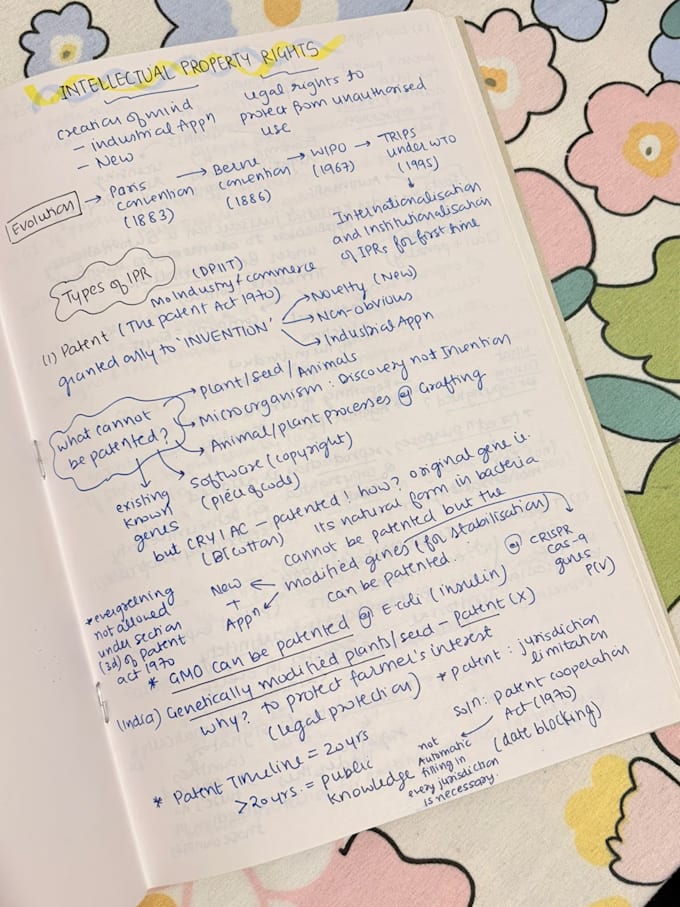 INTELLECTUAL PROPERTY RIGHTS
creation of mind
- industrial Appn
- New
legal rights to
protect from unauthorised
use
Evolution → Paris convention (1883) → Berne convention (1886) → WIPO (1967) → TRIPS under WTO (1995)
↓
Internationalisation
and Institutionalisation
of IPRs for first time
Types of IPR
(DPIIT)
Mo Industry & commerce
(1) Patent (The patent Act 1970)
granted only to 'INVENTION'
→ Novelty (New)
→ Non-obvious
→ Industrial Appn
what cannot
be patented?
→ Plant/Seed/Animals
→ Microorganism: Discovery not Invention
→ Animal/plant processes eg Grafting
→ Software (copyright)
(piece of code)
existing
known
genes
but CRY1AC - patented! how? original gene ie.
(Bt cotton) its natural form in bacteria
cannot be patented but the
modified genes (for stabilisation)
can be patented.
New
+
Appn
eg CRISPR
cas-9
genes
P(V)
*evergreening
not allowed
under section
(3d) of Patent
act 1970
* GMO can be patented eg E-coli (insulin)
(India) Genetically modified plants/seed - patent (X)
why? to protect farmer's interest
(legal protection)
* Patent: jurisdiction
limitation
soln: patent cooperation
Act (1970)
(date blocking)
not
Automatic
filling in
every jurisdiction
is necessary.
* Patent Timeline = 20 yrs
>20 yrs. = public
knowledge